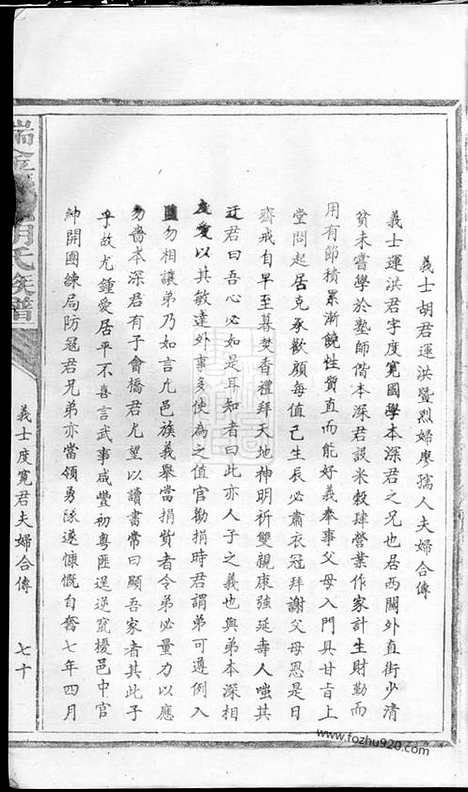 義士胡君運洪暨烈婦廖孺人夫婦合傳
義士運洪君字度寬國學本深君之兄也居西關外直街少清
貧未嘗學於塾師偕本深君設米穀肆營業作家計生財勤而
用有節積累漸饒性質直而能好義奉事父母入門具甘旨上
堂問起居克承歡顏每值己生辰必肅衣冠拜謝父母恩是日
齋戒自早至暮焚香禮拜天地神明祈雙親康強延壽人嗤其
迂君曰吾心必如是耳知者曰此亦人子之義也與弟本深相
友愛以其敏達外事多使為之值官勸捐時君謂弟可遵例入
勿相讓弟乃如言凡邑族義舉當捐貲者令弟必量力以應
勿嗇本深君有子會橋君尤望以讀書常曰顯吾家者其此子
乎故尤鍾愛居平不喜言武事咸豐初粵匪逞逆竄擾邑中官
紳開國練局防寇君兄弟亦當領勇隊遂慷慨自奮七年四月
瑞金 胡氏族譜
義士度寬君夫婦合傳
七十
www.fozhu920.com